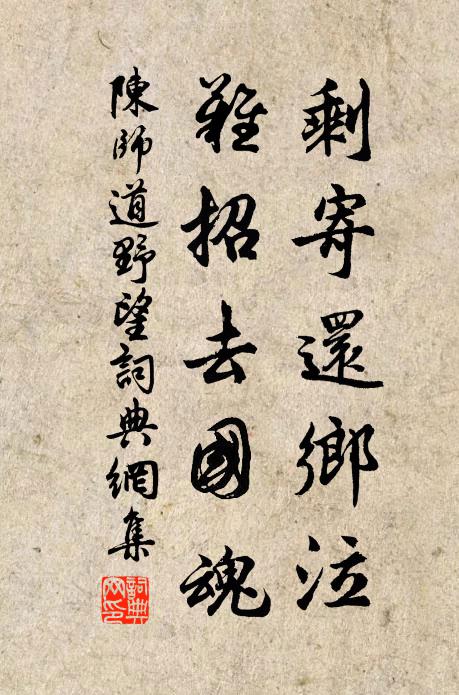 剩寄還鄉泣
難招去國魂
陳師道野望詞典網集
詞典网印